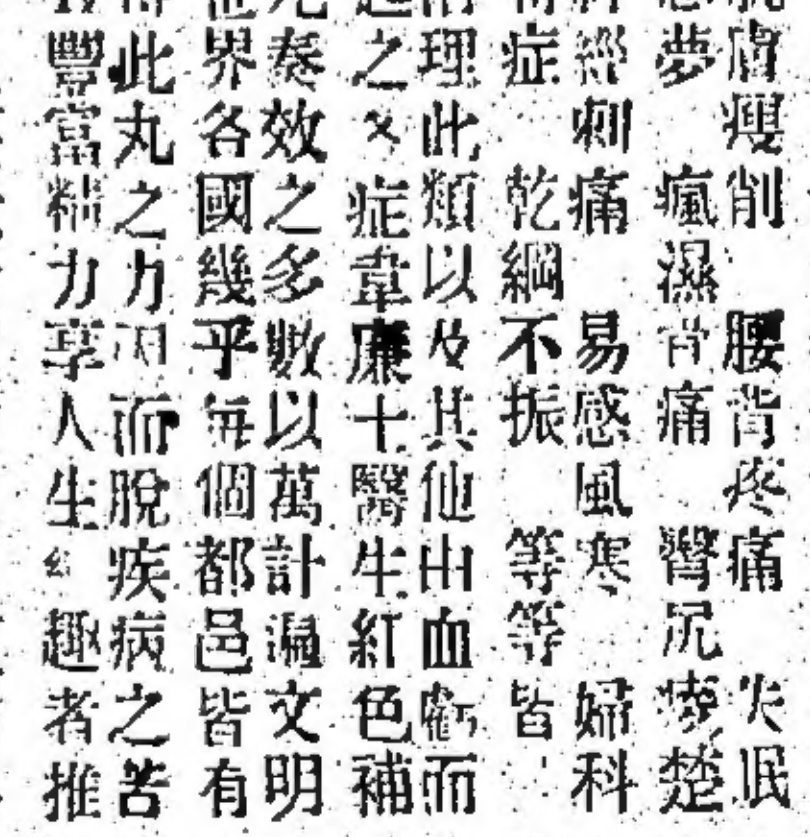 膚瘦削 腰背疼痛 失眠
夢 瘋濕背痛 臀尻痠楚
經刺痛 易感風寒 婦科
症 乾綱不振 等等 皆
理此類以及其他由血虧而
之症韋廉士醫生紅色補
奏效之多數以萬計遍文明
界各國幾乎每個都邑皆有
此丸之力而脫疾病之苦
豐富精力享人生趣者推